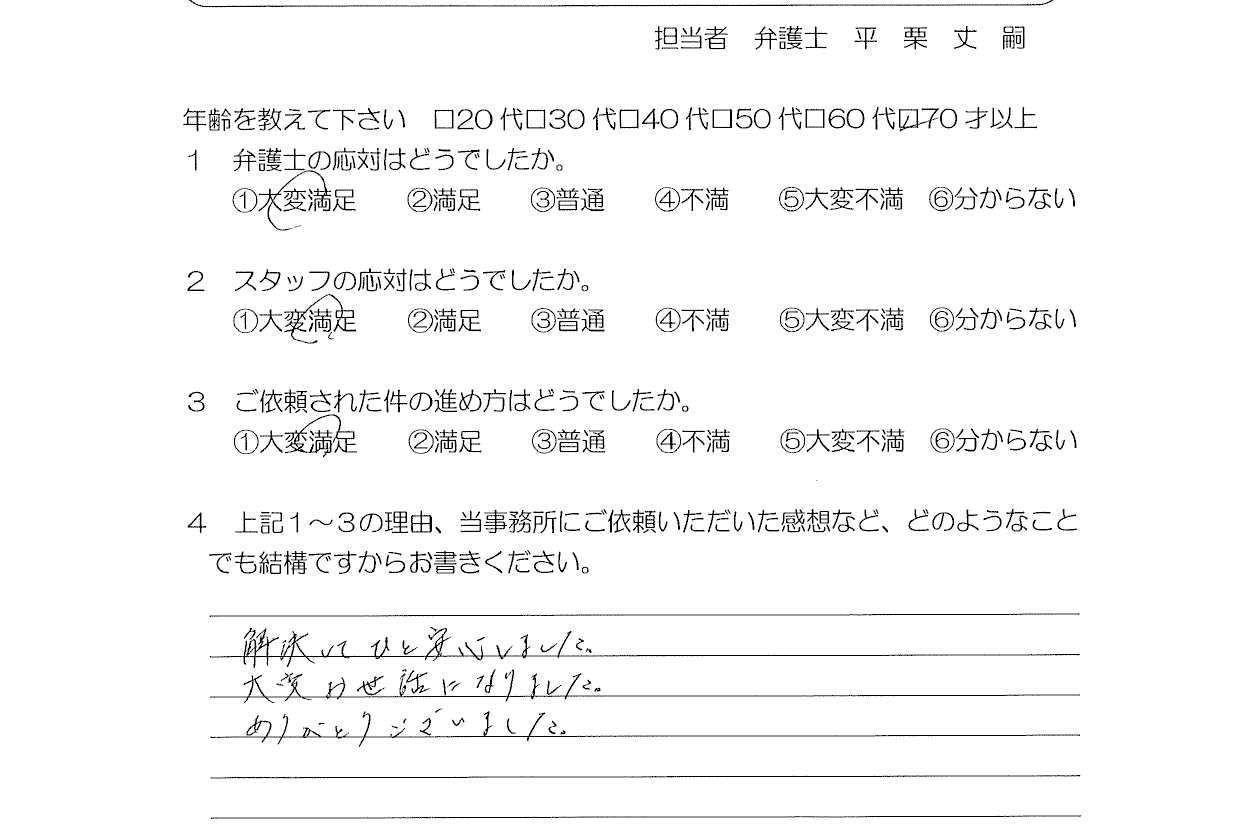 担当者　弁護士　平　栗　丈　嗣
年齢を教えて下さい　□20代□30代□40代□50代□60代□70才以上
1　弁護士の応対はどうでしたか。
①大変満足　②満足　③普通　④不満　⑤大変不満　⑥分からない
2　スタッフの応対はどうでしたか。
①大変満足　②満足　③普通　④不満　⑤大変不満　⑥分からない
3　ご依頼された件の進め方はどうでしたか。
①大変満足　②満足　③普通　④不満　⑤大変不満　⑥分からない
4　上記1～3の理由、当事務所にご依頼いただいた感想など、どのようなこと
でも結構ですからお書きください。
解決してひと安心しました。
大変お世話になりました。
ありがとうございました。